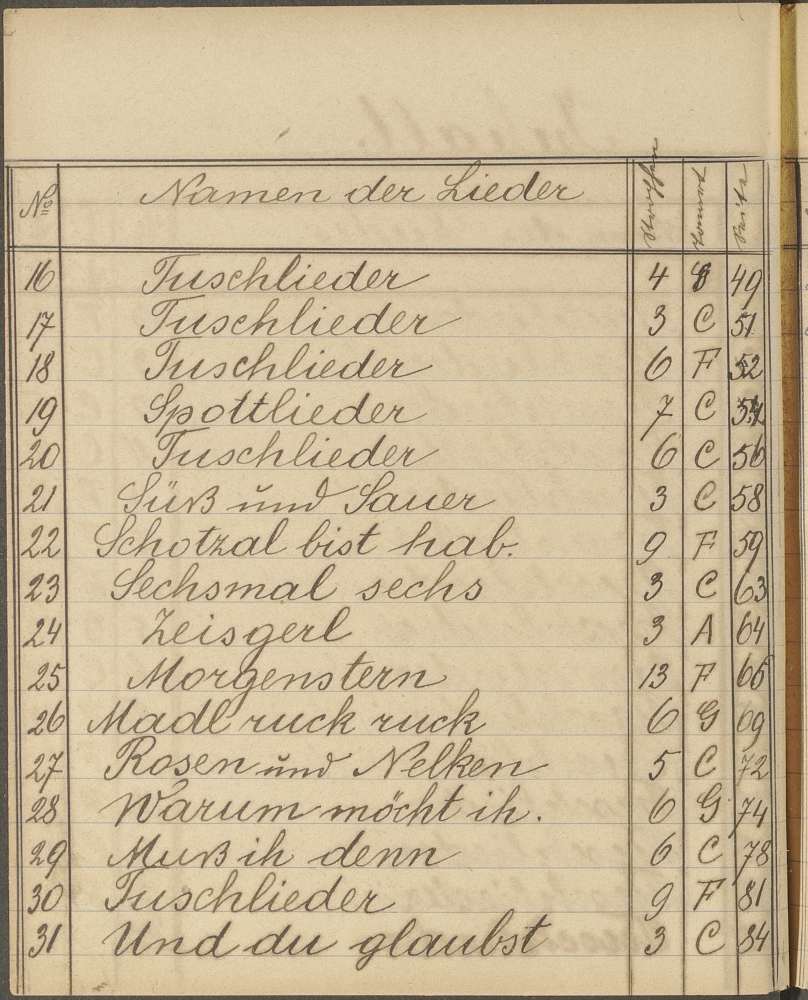 No Namen der Lieder Strophen Tonart Seite
16 Tuschlieder 4 G 49
17 Tuschlieder 3 C 51
18 Tuschlieder 6 F 52
19 Spottlieder 7 C 54
20 Tuschlieder 6 C 56
21 Süß und Sauer 3 C 58
22 Schotzal bist hab. 9 F 59
23 Sechsmal sechs 3 C 63
24 Zeisgerl 3 A 64
25 Morgenstern 13 F 66
26 Madl ruck ruck 6 G 69
27 Rosen und Nelken 5 C 72
28 Warum möcht ih. 6 G 74
29 Muß ih denn 6 C 78
30 Tuschlieder 9 F 81
31 Und du glaubst 3 C 84